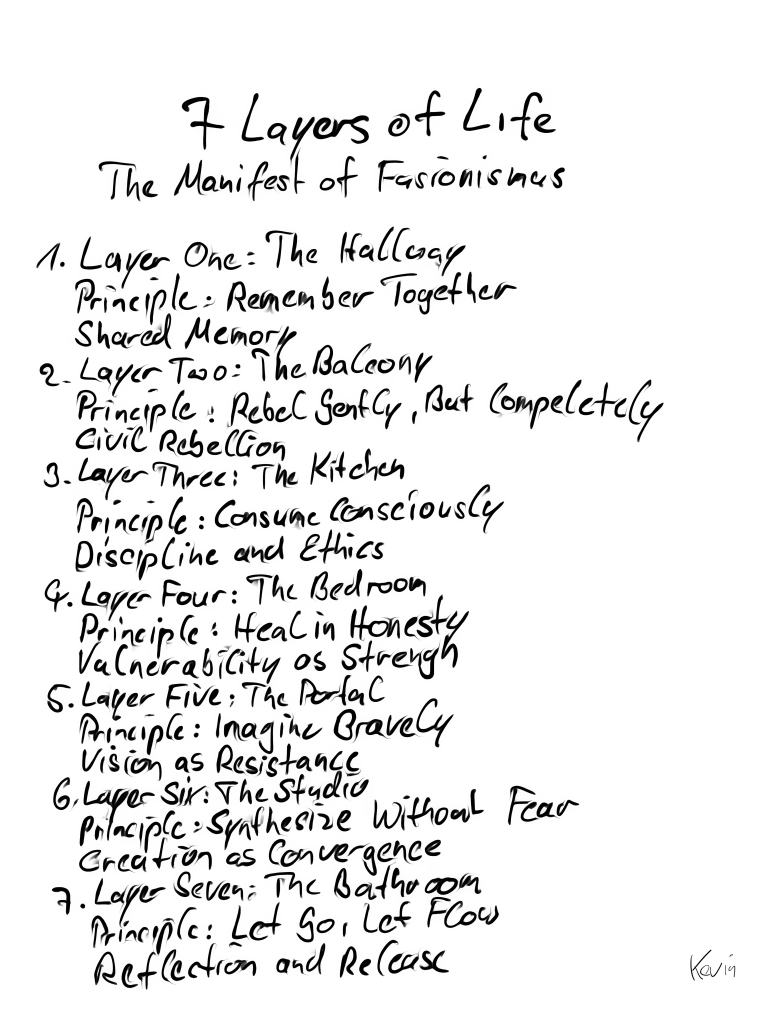 7 Layers of Life
The Manifest of Fusionismus
1. Layer One: The Hallway
Principle: Remember Together
Shared Memory
2. Layer Two: The Balcony
Principle: Rebel Gently, But Compeletely
Civil Rebellion
3. Layer Three: The Kitchen
Principle: Consume Consciously
Discipline and Ethics
4. Layer Four: The Bedroom
Principle: Heal in Honesty
Vulnerability as Strengh
5. Layer Five: The Portal
Principle: Imagine Bravely
Vision as Resistance
6. Layer Six: The Studio
Principle: Synthesize Without Fear
Creation as Convergence
7. Layer Seven: The Bathroom
Principle: Let Go, Let Flow
Reflection and Release
Kevin